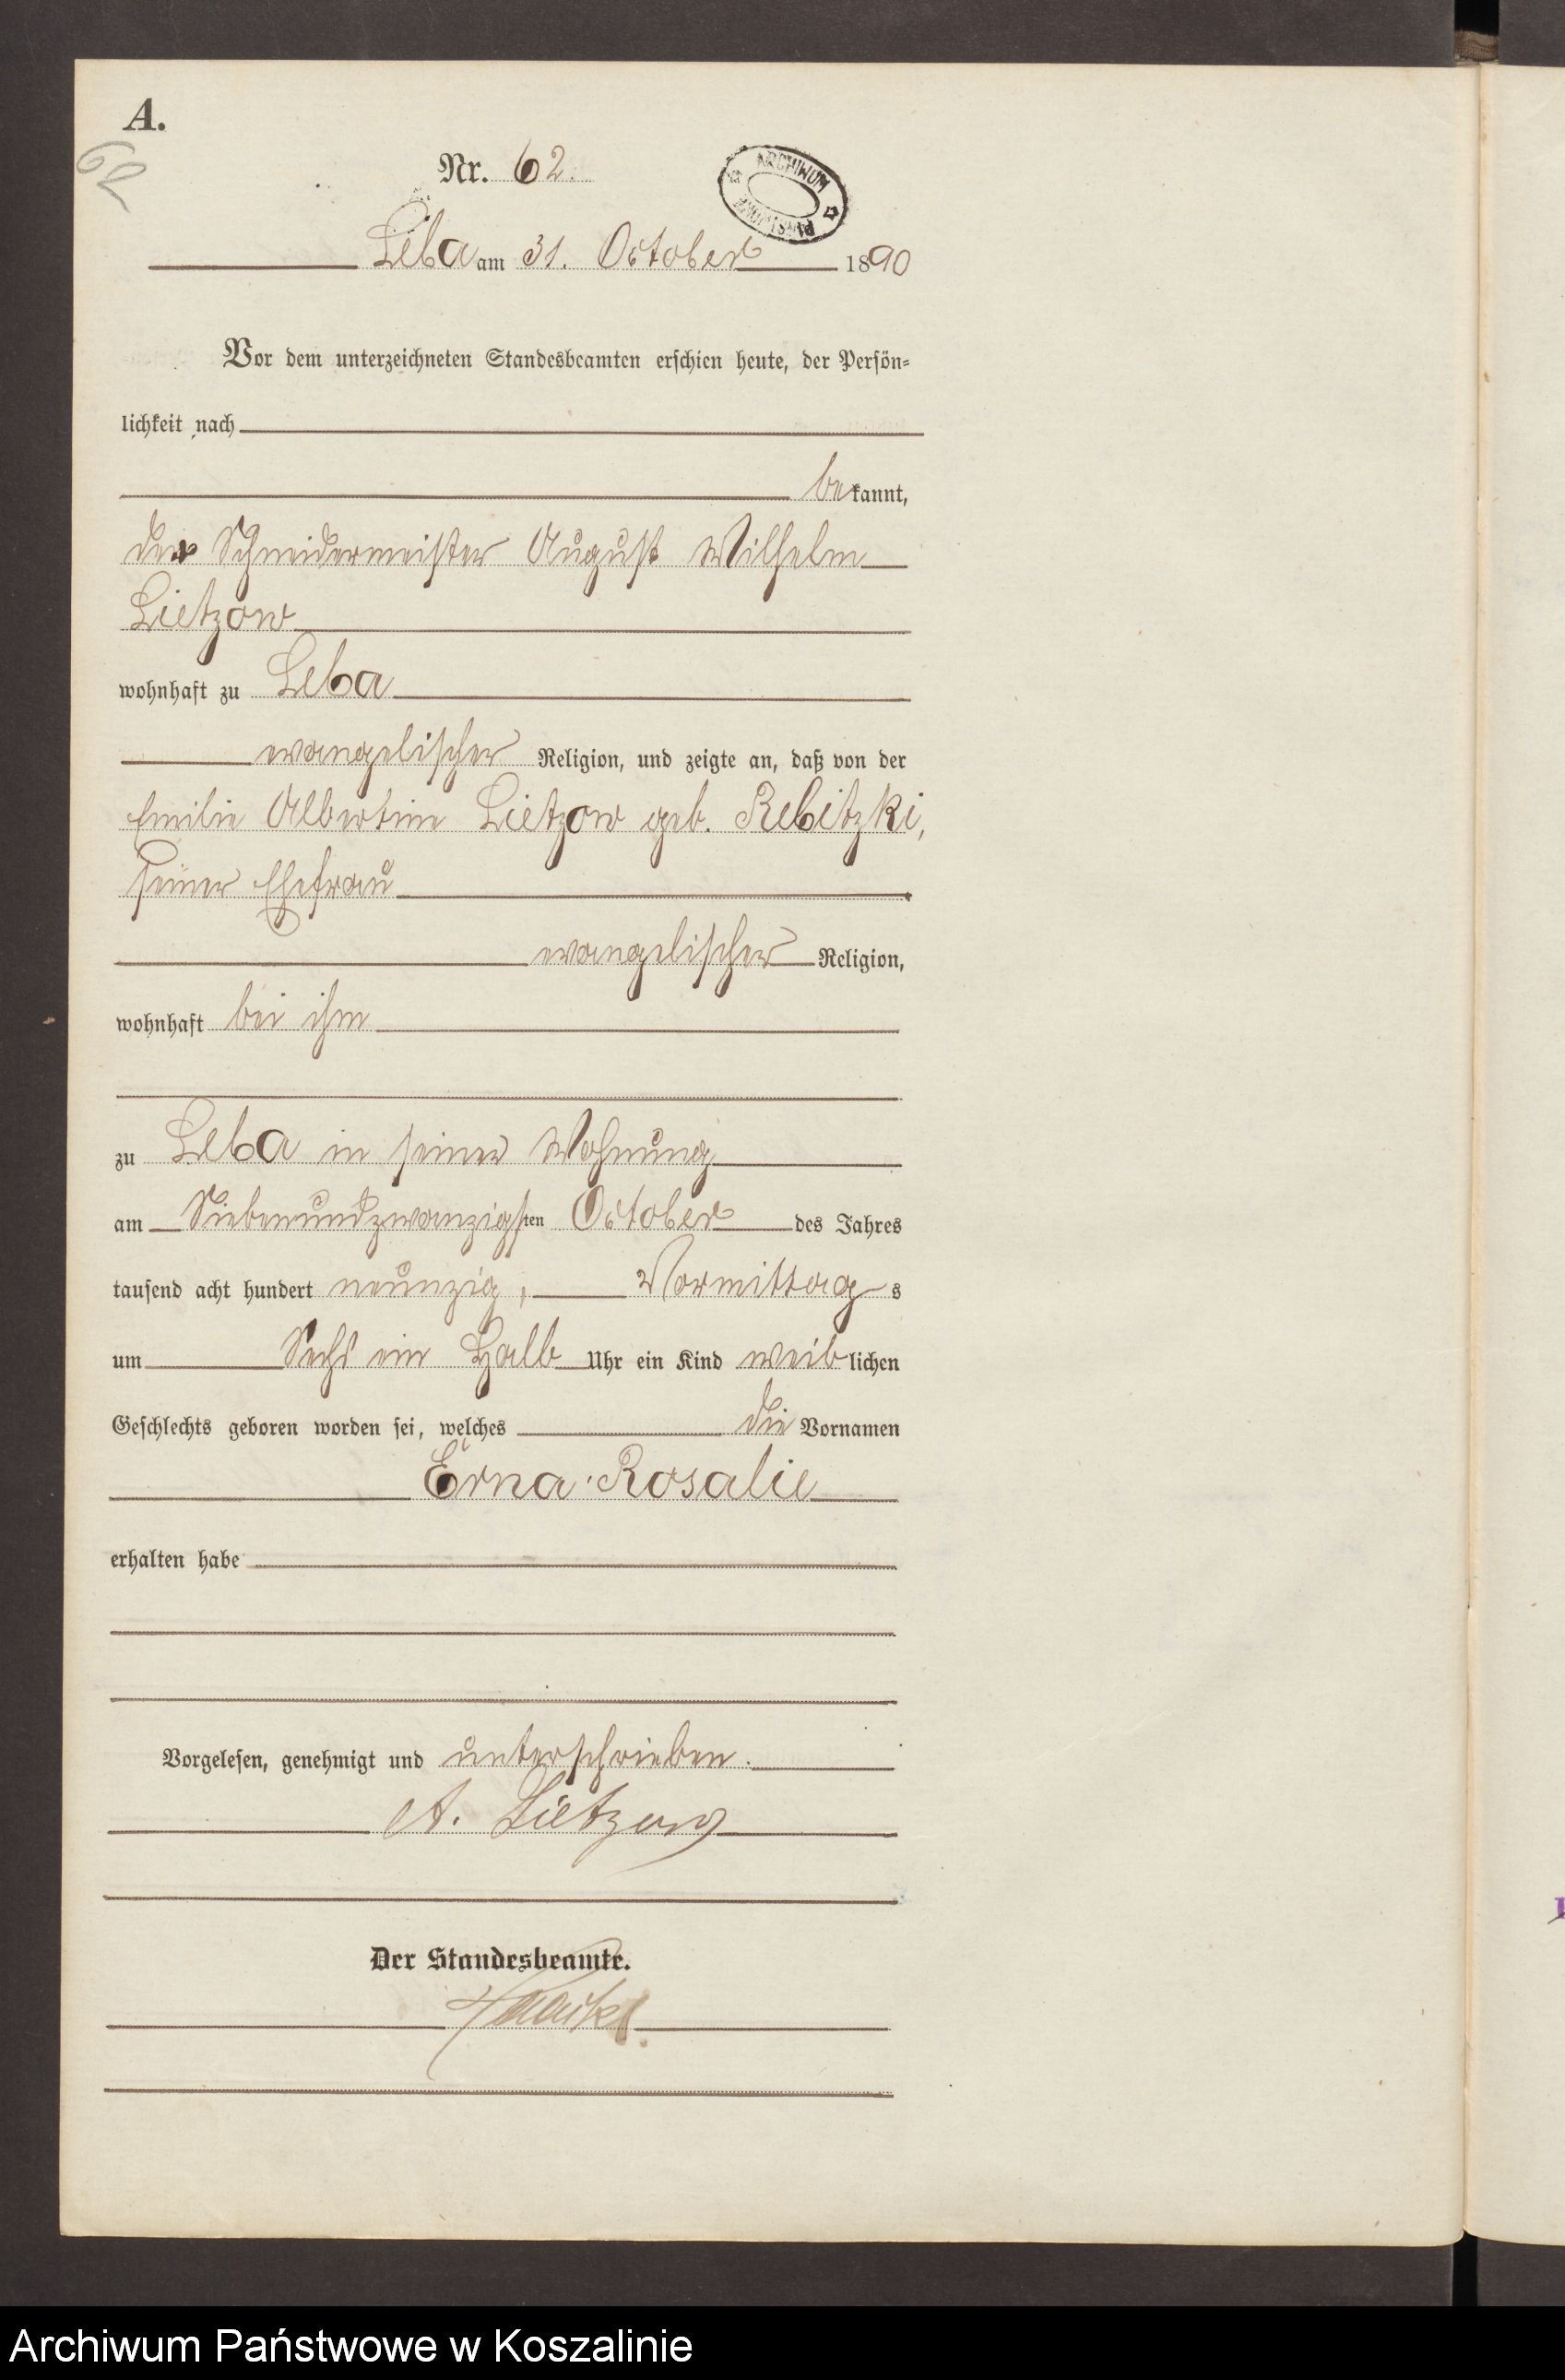 A.
62
Nr. 62.
ARCHIWUM PAŃSTWOWE
Leba am 31. October 1890
Vor dem unterzeichneten Standesbeamten erschien heute, der Persön-
lichkeit nach
bekannt,
der Schneidermeister August Wilhelm
Lietzow
wohnhaft zu Leba
evangelischer Religion, und zeigte an, daß von der
Emilie Albertine Lietzow geb. Rebitzki,
seiner Ehefrau
evangelischer Religion,
wohnhaft bei ihm
zu Leba in seiner Wohnung
am Siebenundzwanzigsten October des Jahres
tausend acht hundert neunzig, Vormittags
um Sechs ein Halb Uhr ein Kind weiblichen
Geschlechts geboren worden sei, welches die Vornamen
Erna Rosalie
erhalten habe
Vorgelesen, genehmigt und unterschrieben.
A. Lietzow
Der Standesbeamte.
Archiwum Państwowe w Koszalinie